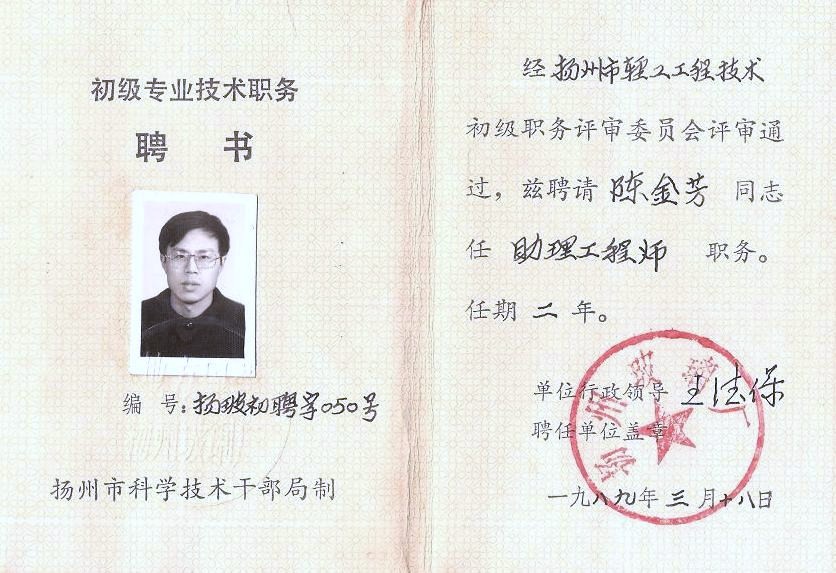 初级专业技术职务
聘书
编号：扬玻初聘字050号
扬州市科学技术干部局制
经扬州市轻工工程技术
初级职务评审委员会评审通
过，兹聘请陈金芳同志
任助理工程师职务。
任期二年。
单位行政领导
聘任单位盖章
一九八九年三月十八日
扬州玻璃厂